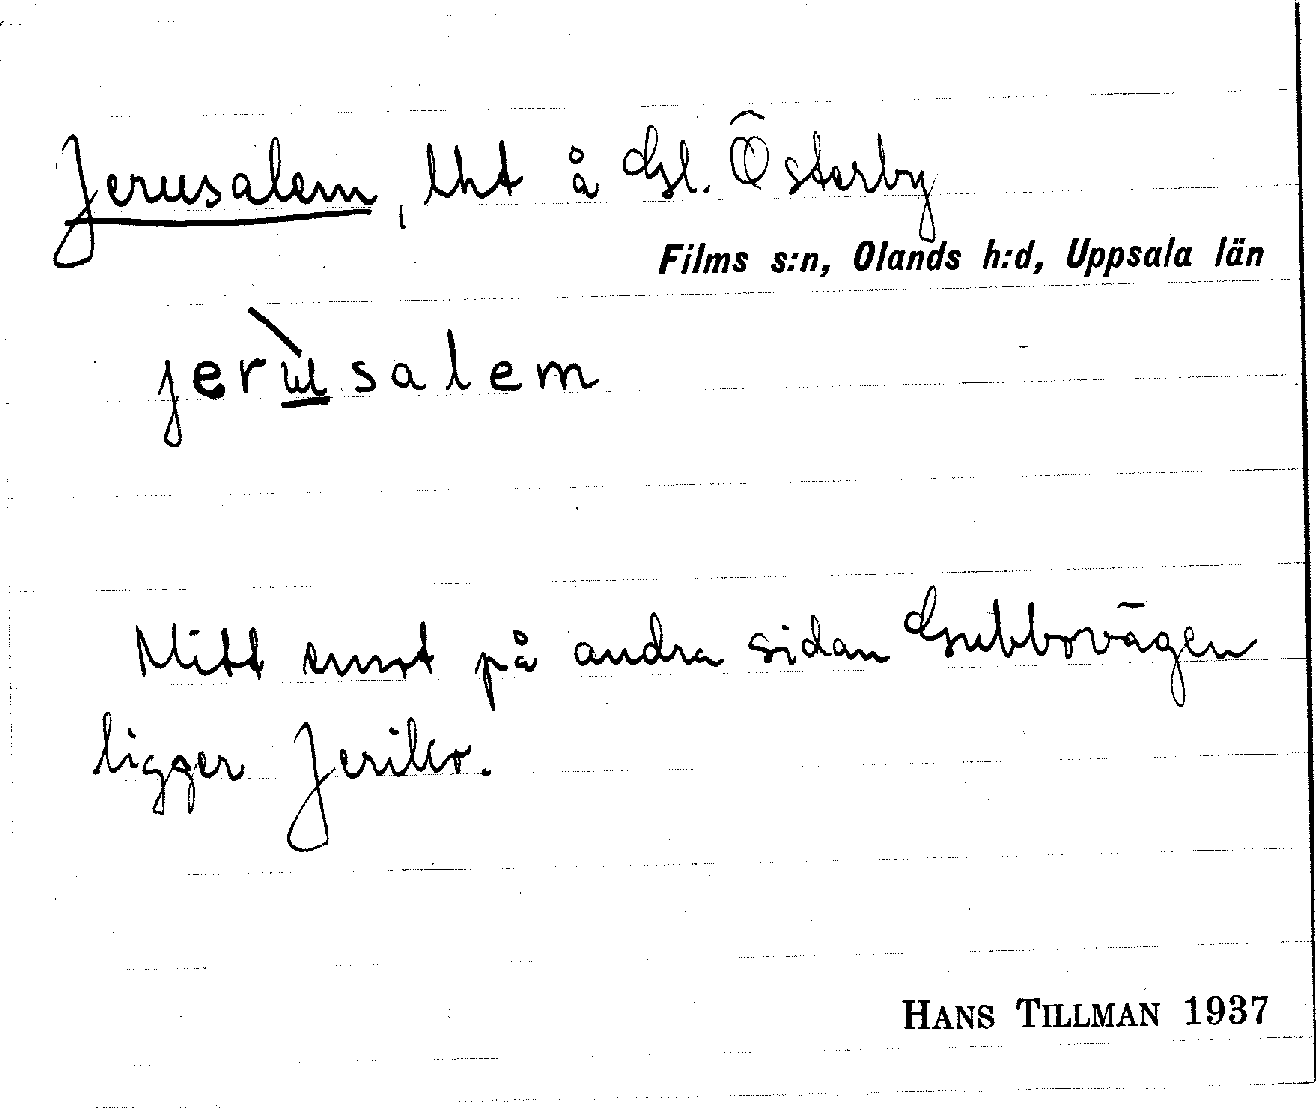 Jerusalem, lht å Gl. Österby
Films s:n, Olands h:d, Uppsala län
jerùsalem
Mitt emot på andra sidan Gubbovägen
ligger Jeriko.
HANS TILLMAN 1937